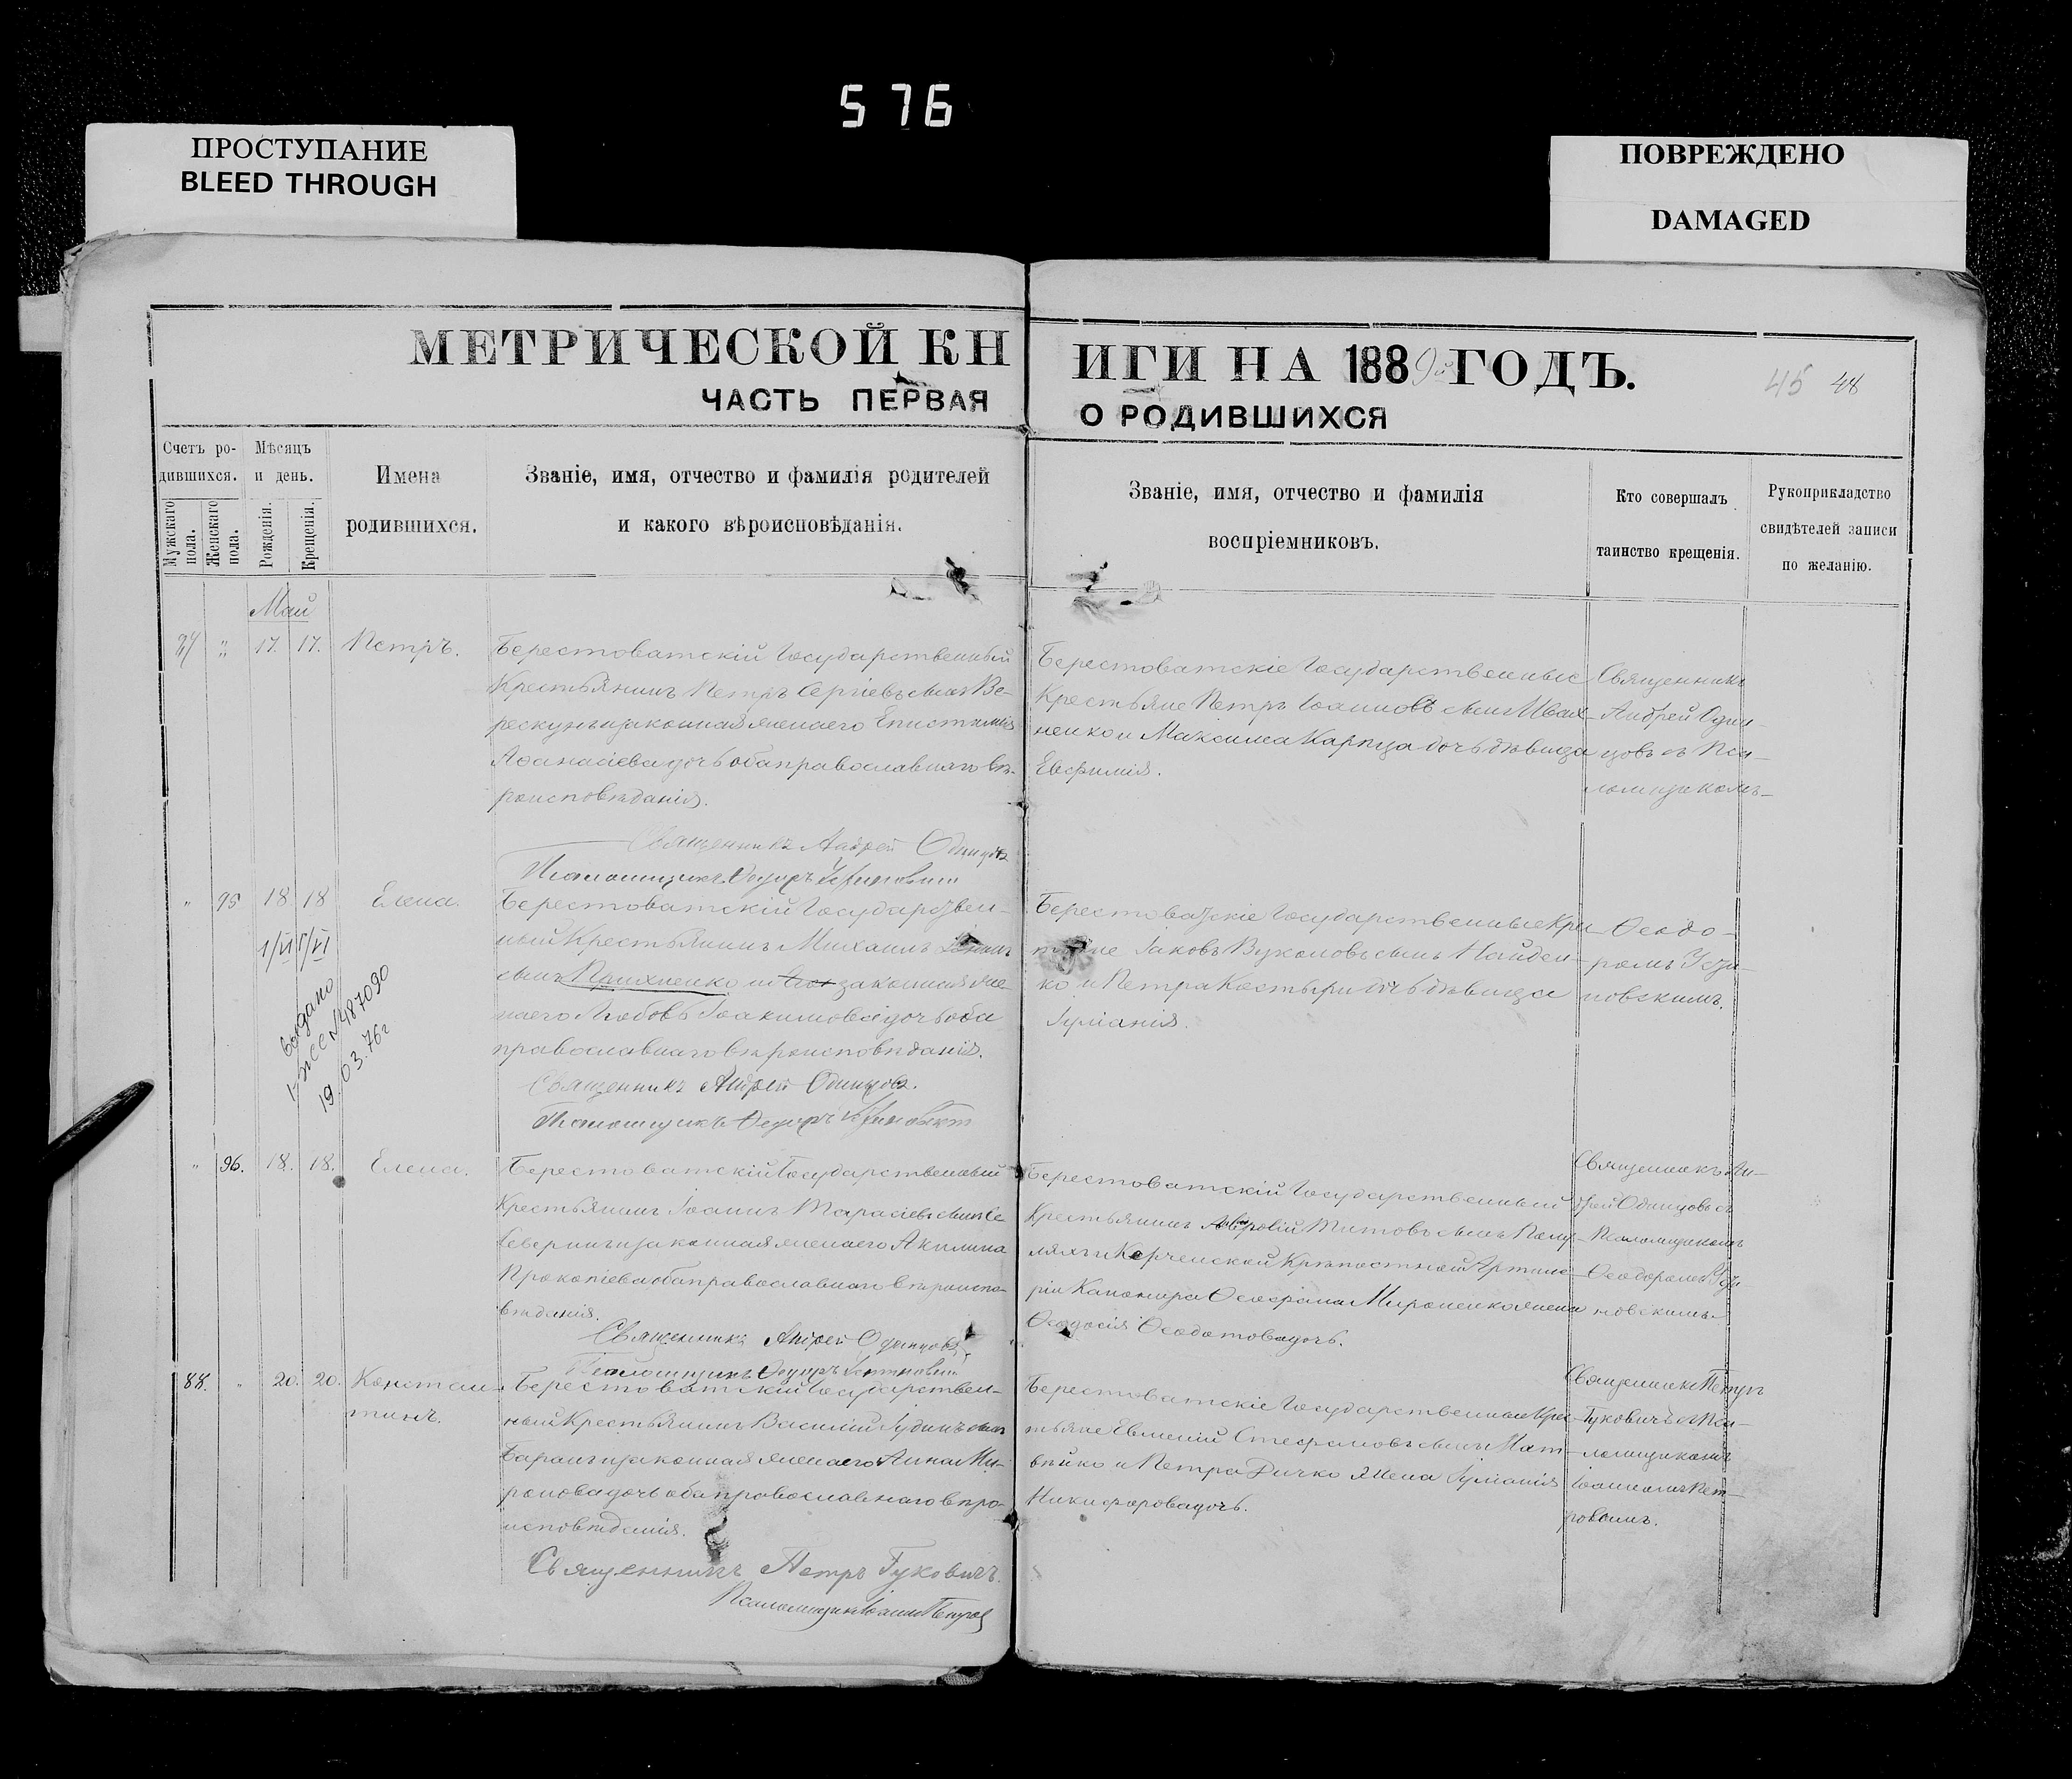 576
ПРОСТУПАНИЕ
BLEED THROUGH
ПОВРЕЖДЕНО
DAMAGED
МЕТРИЧЕСКОЙ КНИГИ НА 1889й ГОДЪ.
45 48
ЧАСТЬ ПЕРВАЯ О РОДИВШИХСЯ
Счетъ ро-
дившихся.
Мужскаго
пола.
Женскаго
пола.
Мѣсяцъ
и день.
Рожденія.
Крещенія.
Имена
родившихся.
Званіе, имя, отчество и фамилія родителей
и какого вѣроисповѣданія.
Званіе, имя, отчество и фамилія
воспріемниковъ.
Кто совершалъ
таинство крещенія.
Рукоприкладство
свидѣтелей записи
по желанію.
Май
17. 17. Петръ.
Берестоватскій Государственный
Крестьянинъ Петръ Сергіевъ сынъ Ве-
рескунъ и законная жена его Епистимія
Аѳанасіева дочь оба православнаго вѣ-
роисповѣданія.
Священникъ Андрей Одинцовъ
Псаломщикъ Ѳеодоръ
Берестоватскіе Государственные
Крестьяне Петръ Іоанновъ сынъ Ивах-
ненко и Максима Карпца дочь дѣвица
Евфимія.
Священникъ
Андрей Один-
цовъ съ Пса-
ломщикомъ
" 95 18 18 Елена.
1/VI 1/VI
выдано
487090
19.03.76г
Берестоватскій Государствен-
ный Крестьянинъ Михаилъ
сынъ и законная же-
на его Любовь Іоакимова дочь оба
православнаго вѣроисповѣданія.
Священникъ Андрей Одинцовъ.
Псаломщикъ Ѳеодоръ
Берестоватскіе Государственные Кре
стьяне Іаковъ сынъ Найден-
ко и Петра Костыри дочь дѣвица
Іуліанія.
Ѳеодо-
ромъ
новскимъ.
" 96. 18. 18. Елена.
Берестоватскій Государственный
Крестьянинъ Іоаннъ Тарасіевъ сынъ Се
веринъ и законная жена его Акилина
Прокопіева оба православнаго вѣроиспо-
вѣданія.
Священникъ Андрей Одинцовъ
Псаломщикъ Ѳеодоръ
Берестоватскій Государственный
Крестьянинъ Титовъ сынъ
и Керченской Крѣпостной Артиле
ріи Канонира Мироненко жена
Ѳеодосія Ѳеодотова дочь.
Священникъ Ан-
дрей Одинцовъ съ
Псаломщикомъ
Ѳеодоромъ
новскимъ
88. " 20. 20. Констан
тинъ.
Берестоватскій Государствен-
ный Крестьянинъ Василій Іудинъ сынъ
Баранъ и законная жена его Анна Ми-
ронова дочь оба православнаго вѣро-
исповѣданія.
Священникъ Петръ Гуковичъ.
Псаломщикъ Іоаннъ Петровъ
Берестоватскіе Государственные Крес
тьяне Евменій Стефановъ сынъ Мат-
вѣйко и Петра Дичко жена Іуліанія
Никифорова дочь.
Священникъ Петръ
Гуковичъ съ Пса-
ломщикомъ
Іоанномъ Пет-
ровымъ.